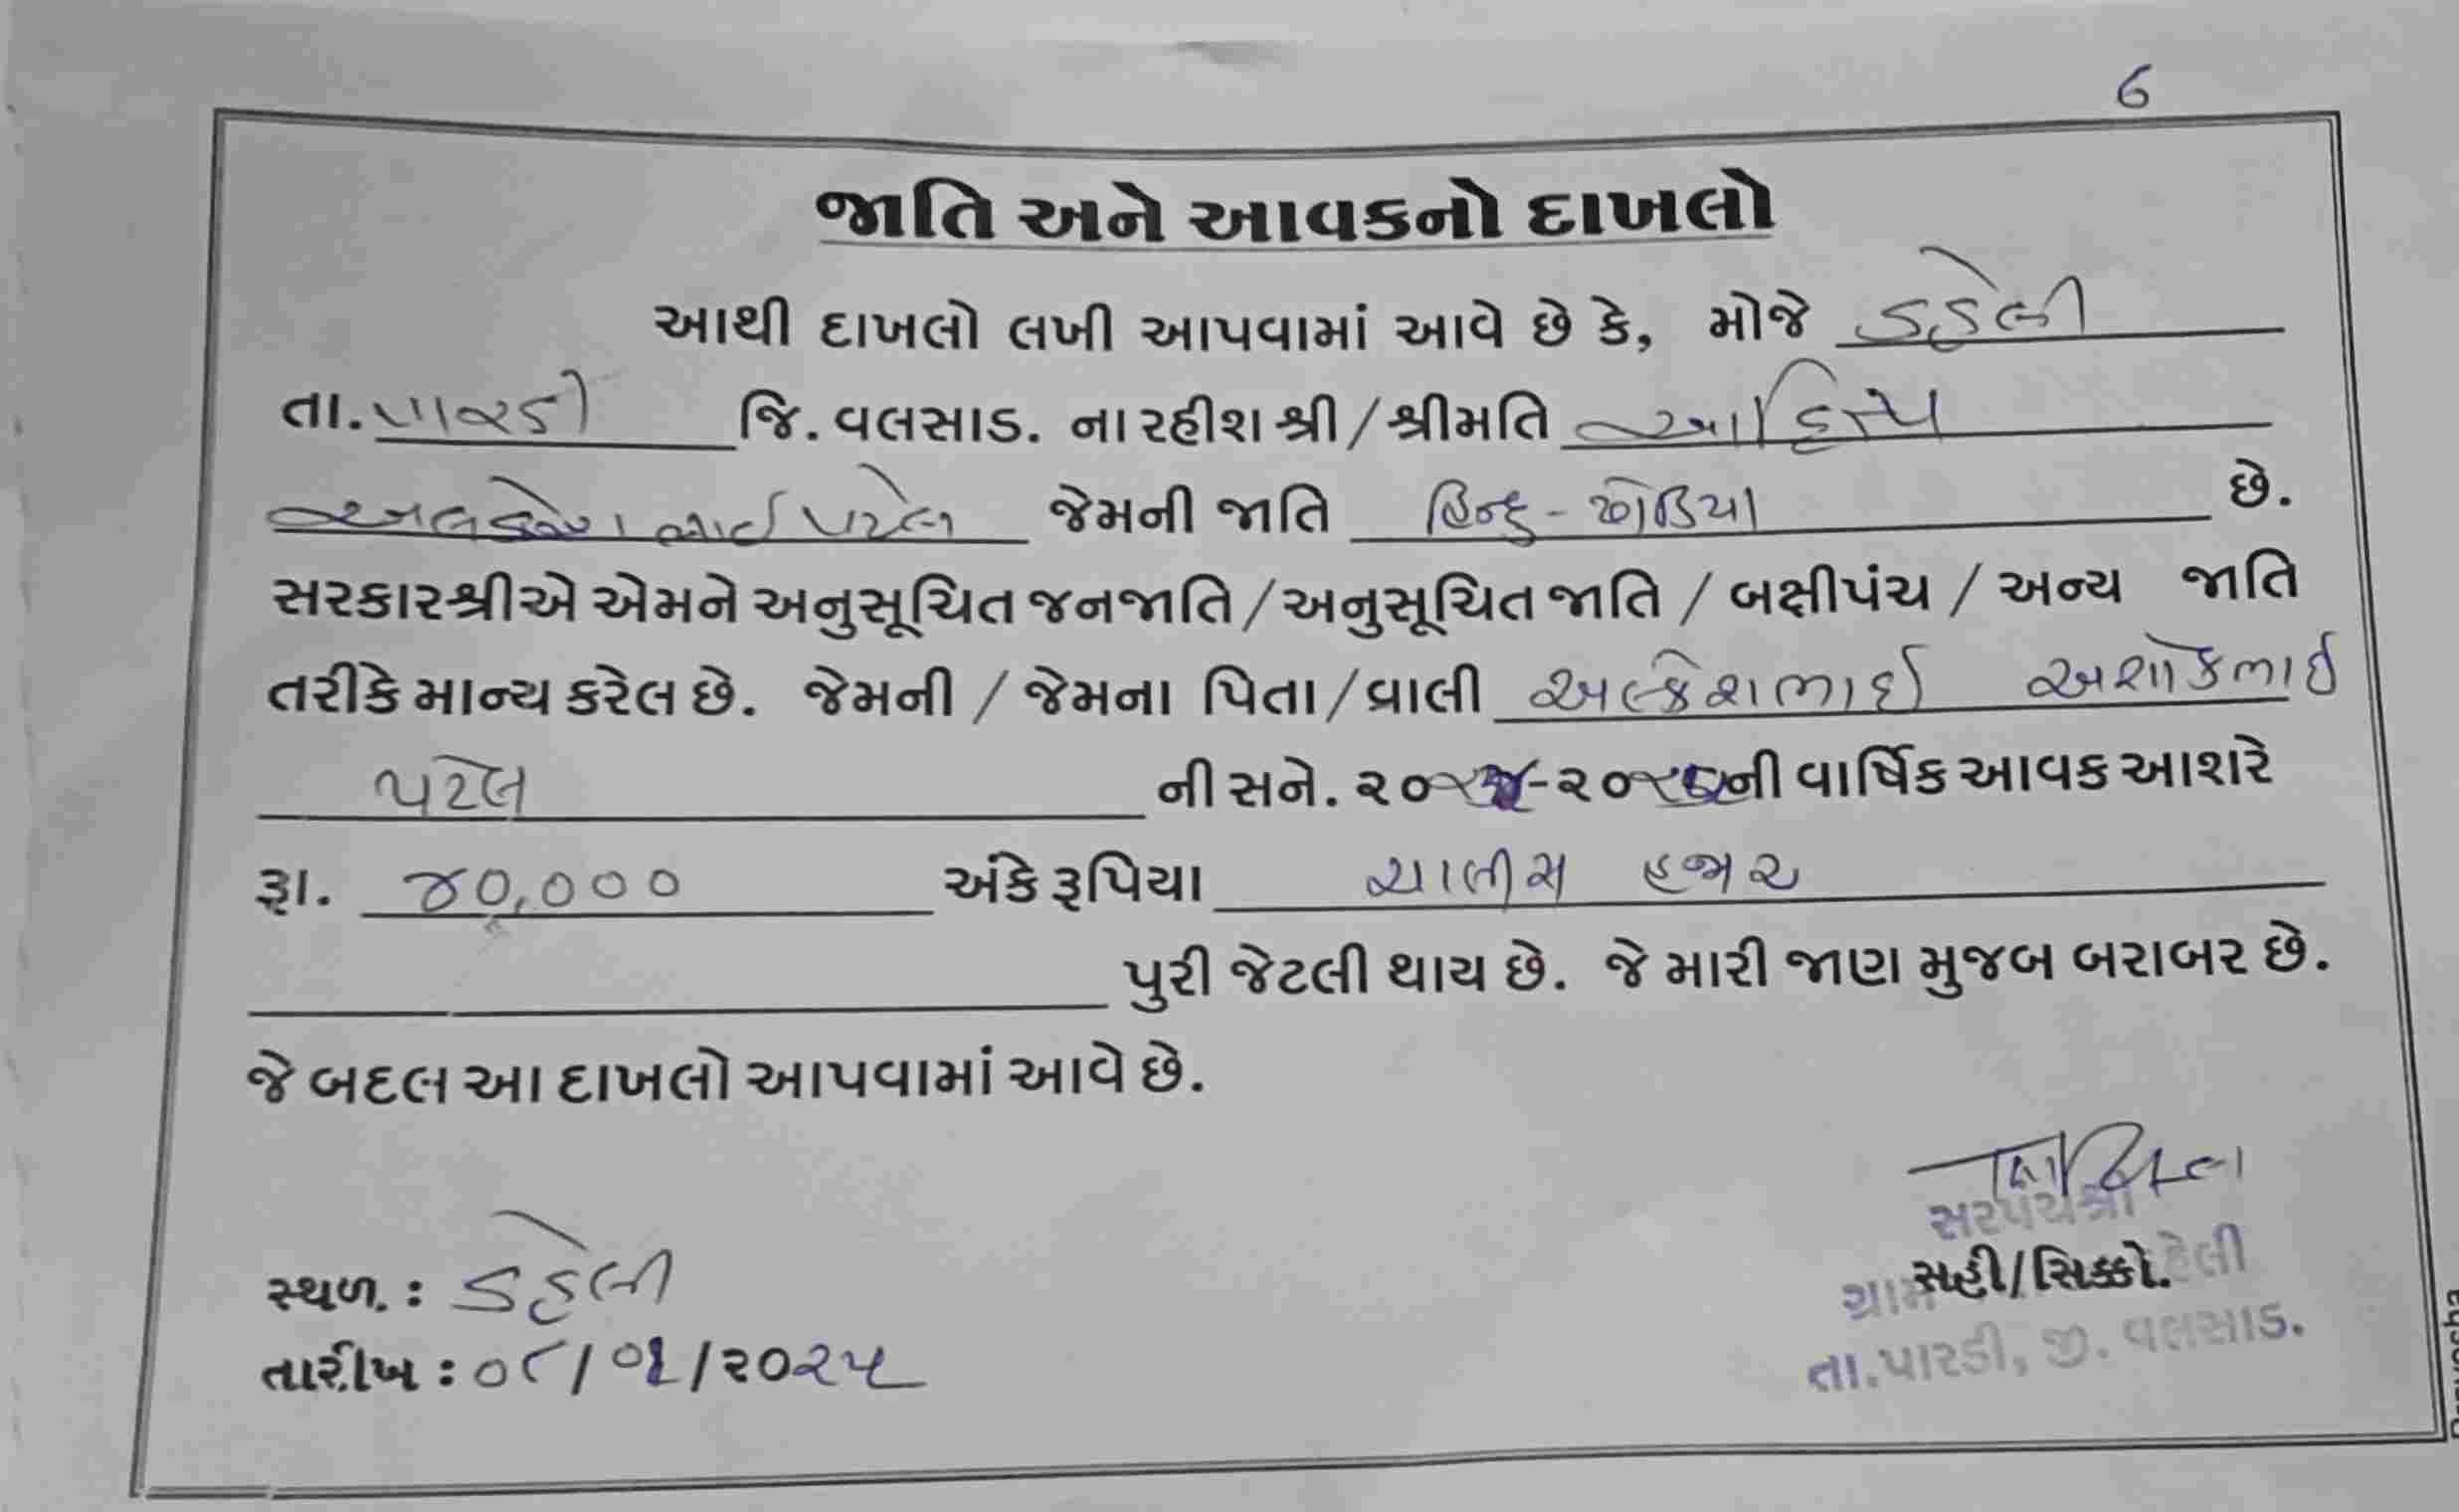 6
જાતિ અને આવકનો દાખલો
આથી દાખલો લખી આપવામાં આવે છે કે, મોજે ડહેલી
તા. પારડી જિ. વલસાડ. ના રહીશ શ્રી / શ્રીમતિ આદિત્ય
અલ્કેશભાઈ પટેલ જેમની જાતિ હિન્દુ - ધોડિયા છે.
સરકારશ્રીએ એમને અનુસૂચિત જનજાતિ / અનુસૂચિત જાતિ / બક્ષીપંચ / અન્ય જાતિ
તરીકે માન્ય કરેલ છે. જેમની / જેમના પિતા / વાલી અલ્કેશભાઈ અશોકભાઈ
પટેલ ની સને. ૨૦૨૪-૨૦૨૫ની વાર્ષિક આવક આશરે
રૂા. ૪૦,૦૦૦ અંકે રૂપિયા ચાલીસ હજાર
પુરી જેટલી થાય છે. જે મારી જાણ મુજબ બરાબર છે.
જે બદલ આ દાખલો આપવામાં આવે છે.
સરપંચશ્રી
સ્થળ. : ડહેલી સહી/સિક્કો.
ગ્રામ
તારીખ : ૦૮/૦૧/૨૦૨૫ તા.પારડી, જી. વલસાડ.